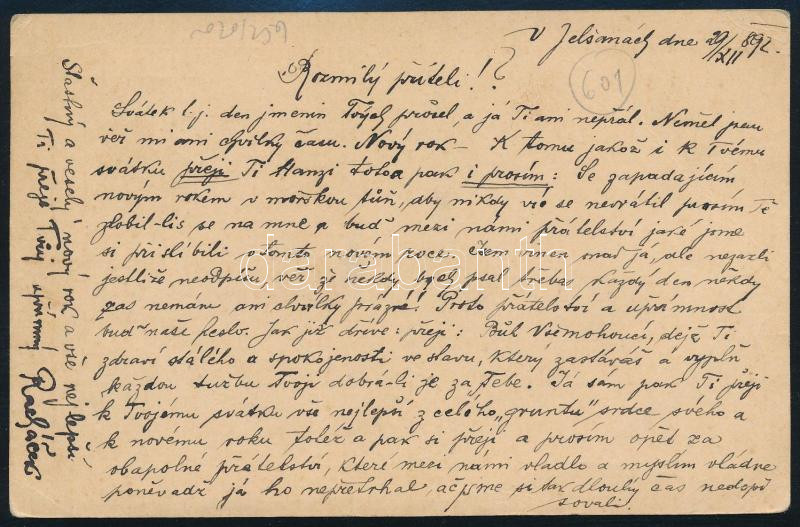 V Jelšanách dne 29/XII 892.
601
Rozmilý příteli!
Svátek t. j. den jmenin Tvých prošel, a já Ti ani nepřál. Neměl jsem
věř mi ani chvilky času. Nový rok – K tomu jakož i k Tvému
svátku přeji Ti Hanzi toto a pak i prosím: Se zapadajícím
novým rokem v mořskou tůň, aby nikdy víc se nevrátil prosím Tě
zlobil-lis se na mne a buď mezi námi přátelství jaké jsme
si přislíbili v tomto novém roce. Jsem vinen snad já, ale
jestliže neodpíšu věř že někdy bych psal třeba každý den někdy
zas nemám ani chvilky prázné! Proto přátelství a upřímnost
buď naše heslo. Jak již dříve: přeji: Bůh Všemohoucí, dejž Ti
zdraví stálého a spokojenosti ve stavu, který zastáváš a vyplň
každou tužbu Tvoji dobrá-li je za Tebe. Já sám pak Ti přeji
k Tvojému svátku vše nejlepší z celého „gruntu" srdce svého a
k novému roku totéž a pak si přeji a prosím opět za
obapolné přátelství, které mezi námi vládlo a myslím vládne
poněvadž já ho nepřetrhal, ač jsme si tak dlouhý čas nedopi-
sovali.
Šťastný a veselý nový rok a vše nejlepší
Ti přeje Tvůj upřímný
darabanth